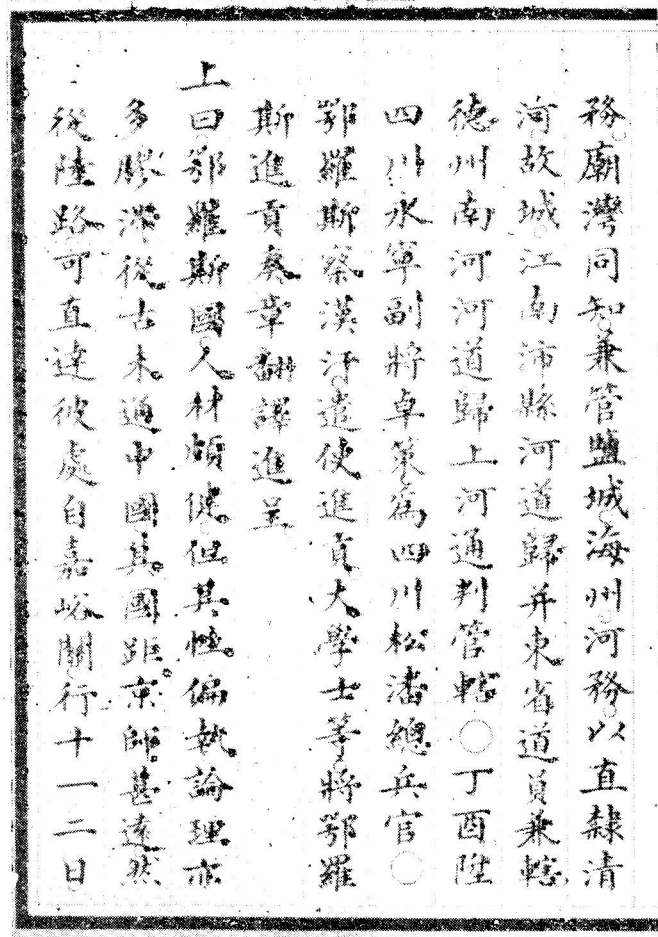 務廟灣同知兼管鹽城海州河務以直隸清
河故城江南沛縣河道歸并東省道員兼轄
德州南河河道歸上河通判管轄○丁酉陞
四川永寧副將卓策為四川松潘總兵官○
鄂羅斯察漢汗遣使進貢大學士等將鄂羅
斯進貢奏章翻譯進呈
上曰鄂羅斯國人材頗健但其性偏執論理亦
多膠滯從古未通中國其國距京師甚遠然
從陸路可直達彼處自嘉峪關行十一二日